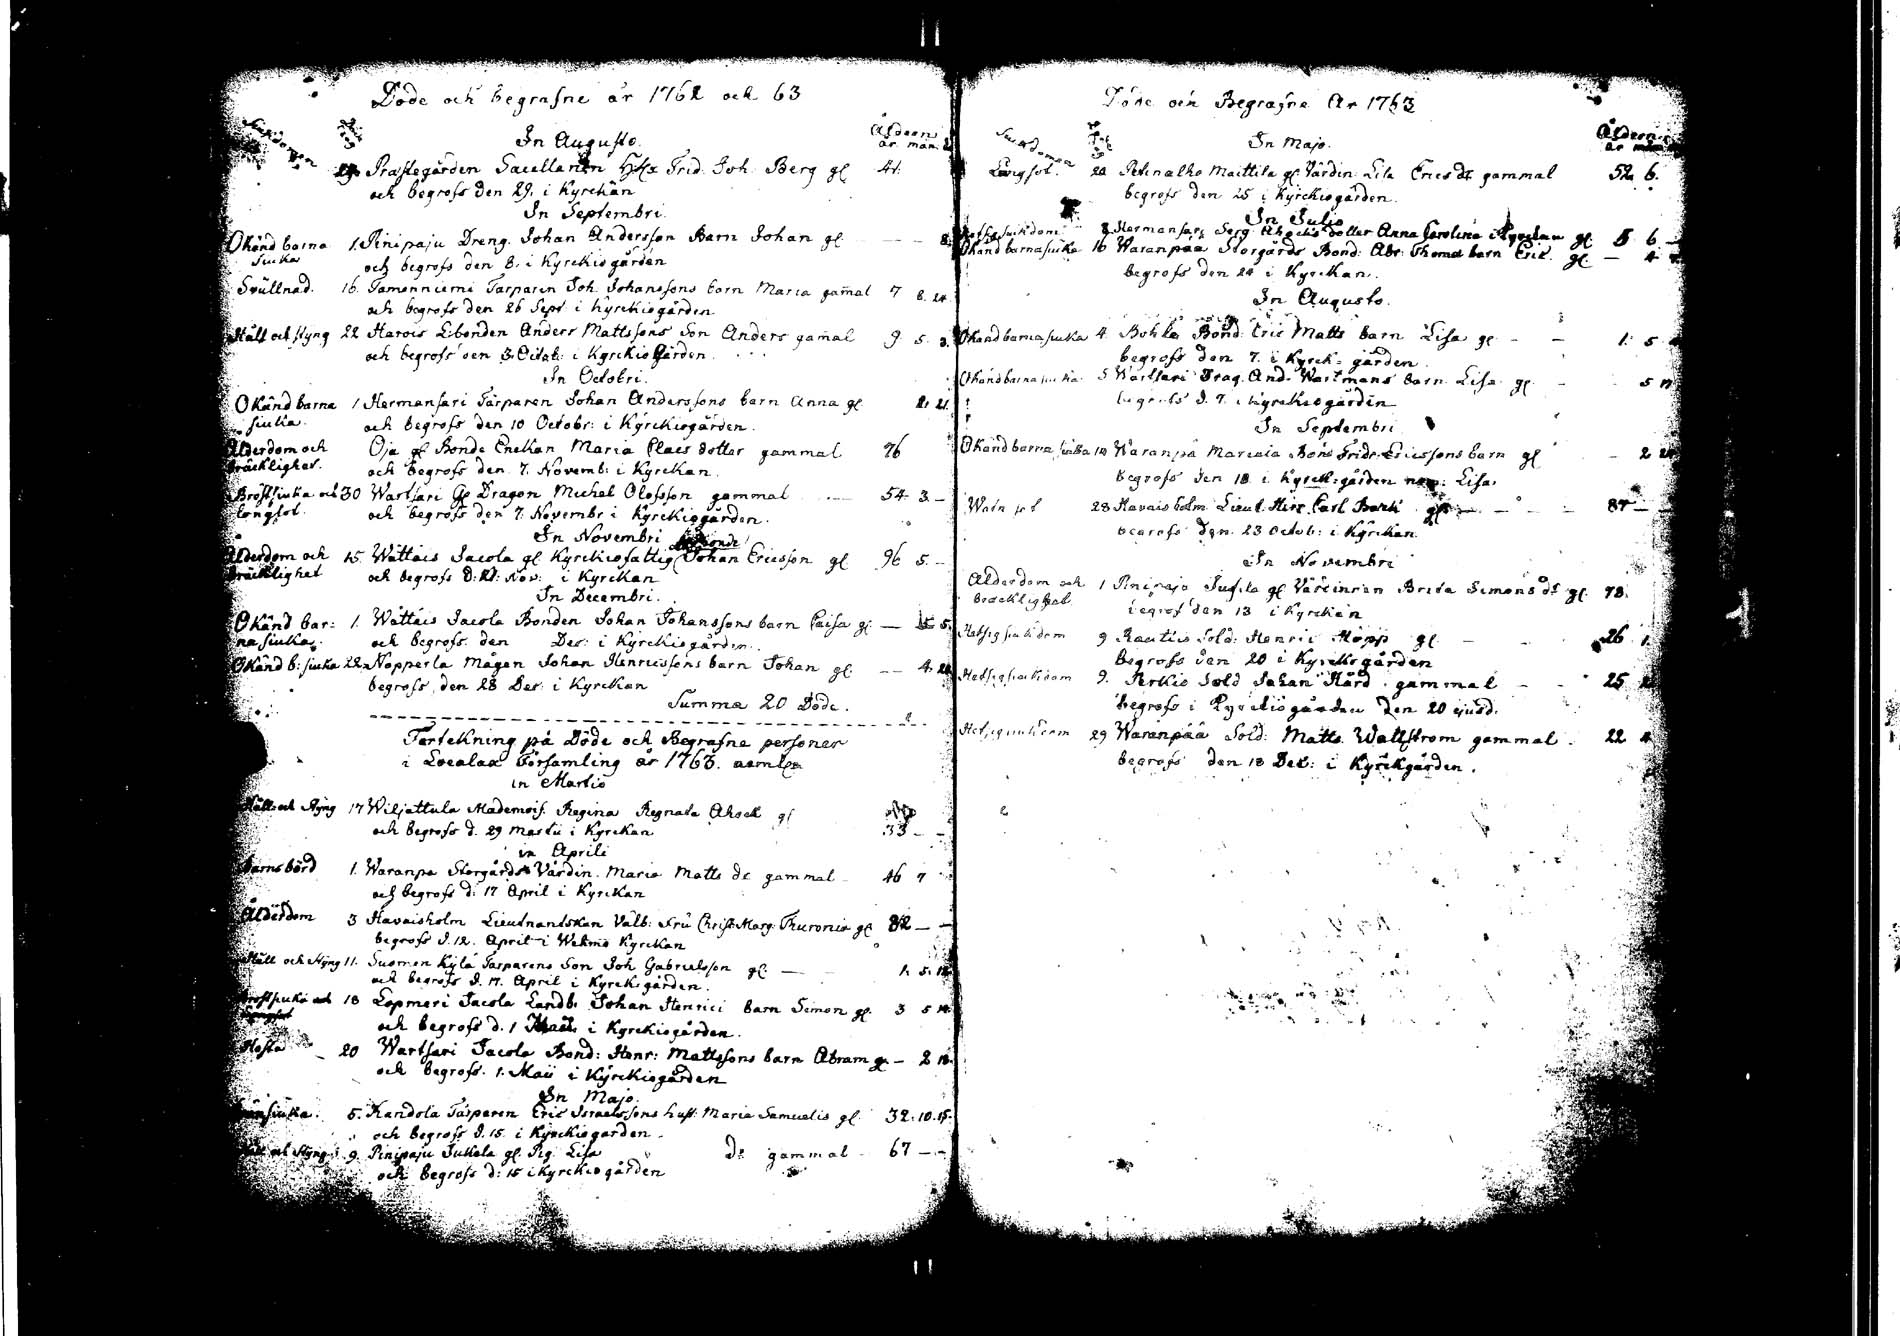 Döde och begrafne år 1762 och 63
Siukdomen
Ålderen
år mån:
In Augusto.
29 Prästegården Sacellanen Frid. Joh. Berg gl 41.
och begrofs den 29. i Kyrckan
In Septembri.
Okänd barna 1. Pinipaju Dreng. Johan Andersson Barn Johan gl — — 8.
siuka
och begrofs den 8. i Kyrckiogården
Svullnad. 16. Tamonniemi Tarparen Joh. Johanssons barn Maria gamal 7 8. 24.
och begrofs den 26 Sept. i Kyrckiogården
Håll och styng 22 Harois Eibonden Anders Mattssons Son Anders gamal 9. 5. 3.
och begrofs den 3 Octob: i Kyrckiogården.
In Octobri.
Okänd barna 1 Hermansari Tarparen Johan Anderssons barn Anna gl 2. 21.
siuka.
och begrofs den 10 Octobr: i Kyrckiogården.
Ålderdom och Oja gl Bonde Enckan Maria Claes dotter gammal 76
bräcklighet.
och begrofs den 7. Novemb: i Kyrckan.
Bröstsiuka och 30 Wartsari Gl Dragon Michel Olofsson gammal 54. 3. —
Longsot.
och begrofs den 7. Novembr i Kyrckiogården.
In Novembri
Ålderdom och 15. Wättäis Jacola gl Kyrckiofattig Johan Ericsson gl 96 5. —
bräcklighet
och begrofs d: 21: Nov: i Kyrckan
In Decembri.
Okänd bar: 1. Wättäis Jacola Bonden Johan Johanssons barn Caisa gl — 5.
na siuka.
och begrofs den Des: i Kyrckiogården.
Okänd b: siuka 22 Nopperla Mågen Johan Henricssons barn Johan gl — — 4. 24
begrofs den 28 Des: i Kyrckan
Summa 20 Döde.
Förtekning på Döde och Begrafne personer
i Localax Församling år 1763. nemln
in Martio
Håll och styng 17 Wiljattula Mademois. Regina Regnata Ahock gl 33 — —
och begrofs d. 29 Martii i Kyrckan
in Aprili
Barnsbörd 1. Waranpä Storgårds Värdin. Maria Matts dr gammal 46 7
och begrofs d: 17 April i Kyrckan
Ålderdom 3 Havaisholm Lieutnantskan Välb: Fru Christ: Marg: Thuronia gl 82 — —
begrofs d. 12. April i Wehmo Kyrckan
Håll och styng 11. Suomen Kylä Tarparens Son Joh Gabrielsson gl — 1. 5. 12.
och begrofs d. 17. April i Kyrck:gården.
Bröstsiuka och 18 Lopmeri Jacola Landb: Johan Henrici barn Simon gl 3 5 14.
och begrofs d. 1 Maii i Kyrckiogården.
Hosta 20 Wartsari Jacola Bond: Henr: Mattssons barn Abram gl — 2 18.
och begrofs. 1. Maii i Kyrckiogården
In Majo.
5. Kandola Tarparen Eric Israelssons hust: Maria Samuelis gl. 32. 10. 15.
och begrofs d. 15. i Kyrckiogården.
Håll och styng 9. Pinipaju Jukola gl. Pig. Lisa dr gammal 67 — —
och begrofs d: 15 i Kyrckiogården
Döde och Begrafne År 1763
Siukdomen
Ålderen
år mån
In Majo.
Långsot. 20 Petinalho Maittila gl. Värdin Lisa Erics dr gammal 52 6.
begrofs den 25 i Kyrckiogården.
In Julio
Hetsig siukdom 8 Hermansari Serg: Ahocks dotter Anna Carolina i Kyrckan gl 5 6. —
Okänd barnasiuka 16 Waranpää Storgårds Bond: Abr: Thomæ barn Eric. gl. — 4
begrofs den 24 i Kyrckan.
In Augusto.
Okänd barnasiuka 4. Buhla Bond: Eric Matts barn Lisa gl — — 1. 5
begrofs den 7. i Kyrck:gården.
Okänd barnasiuka 5 Wartsari Drag. And. Wartmans barn Lisa gl. — 5 17
begrofs d. 7. i Kyrckiogården
In Septembri
Okänd barna siuka 14 Waranpä Marcaia Böns Fridr: Ericssons barn gl — 2 24
begrofs den 18. i Kyrck:gården nom: Lisa.
28 Havaisholm Lieut. Hirr Carl Barck gl — — — 87 — —
begrofs den 23 Octob: i Kyrckan.
In Novembri
Ålderdom och 1 Pinipaju gl Värdinnan Brita Simons dr gl. 78.
bräcklighet
begrof den 13 i Kyrckan
Hetsig siukdom 9 Rautiis Sold: Henric Hopp gl — — 26 1.
begrofs den 20 i Kyrckogården
Hetsig siukdom 9. Perkio Sold Johan Hård gammal — — 25
begrofs i Kyrckiogården den 20 ejusd.
Hetsig siukdom 29 Waranpää Sold: Matts Wallstrom gammal. 22 4
begrofs den 18 Dec: i Kyrckgården.